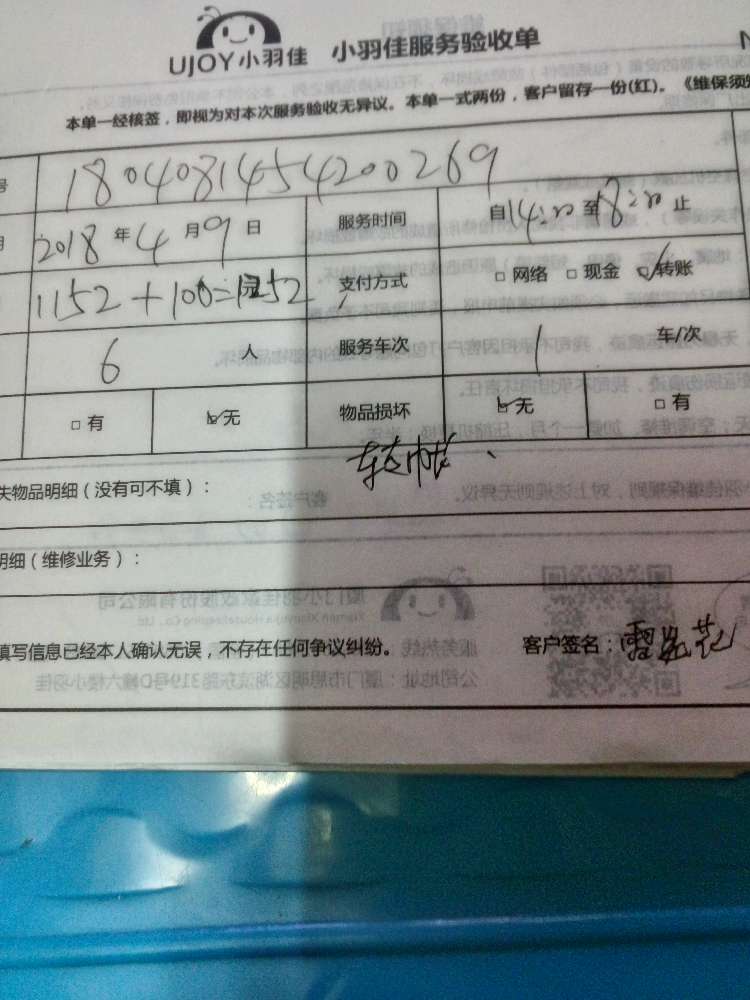 UJOY小羽佳 小羽佳服务验收单
本单一经核签，即视为对本次服务验收无异议。本单一式两份，客户留存一份(红)。《维保须知
号 180408145420 0269
月 2018 年 4 月 9 日 服务时间 自 14:00 至 18:00 止
1152+100=1252 元 支付方式 □ 网络 □ 现金 ☑ 转账
6 人 服务车次 1 车/次
□ 有 ☑ 无 物品损坏 ☑ 无 □ 有
转帐、
失物品明细（没有可不填）：
明细（维修业务）：
填写信息已经本人确认无误，不存在任何争议纠纷。 客户签名：